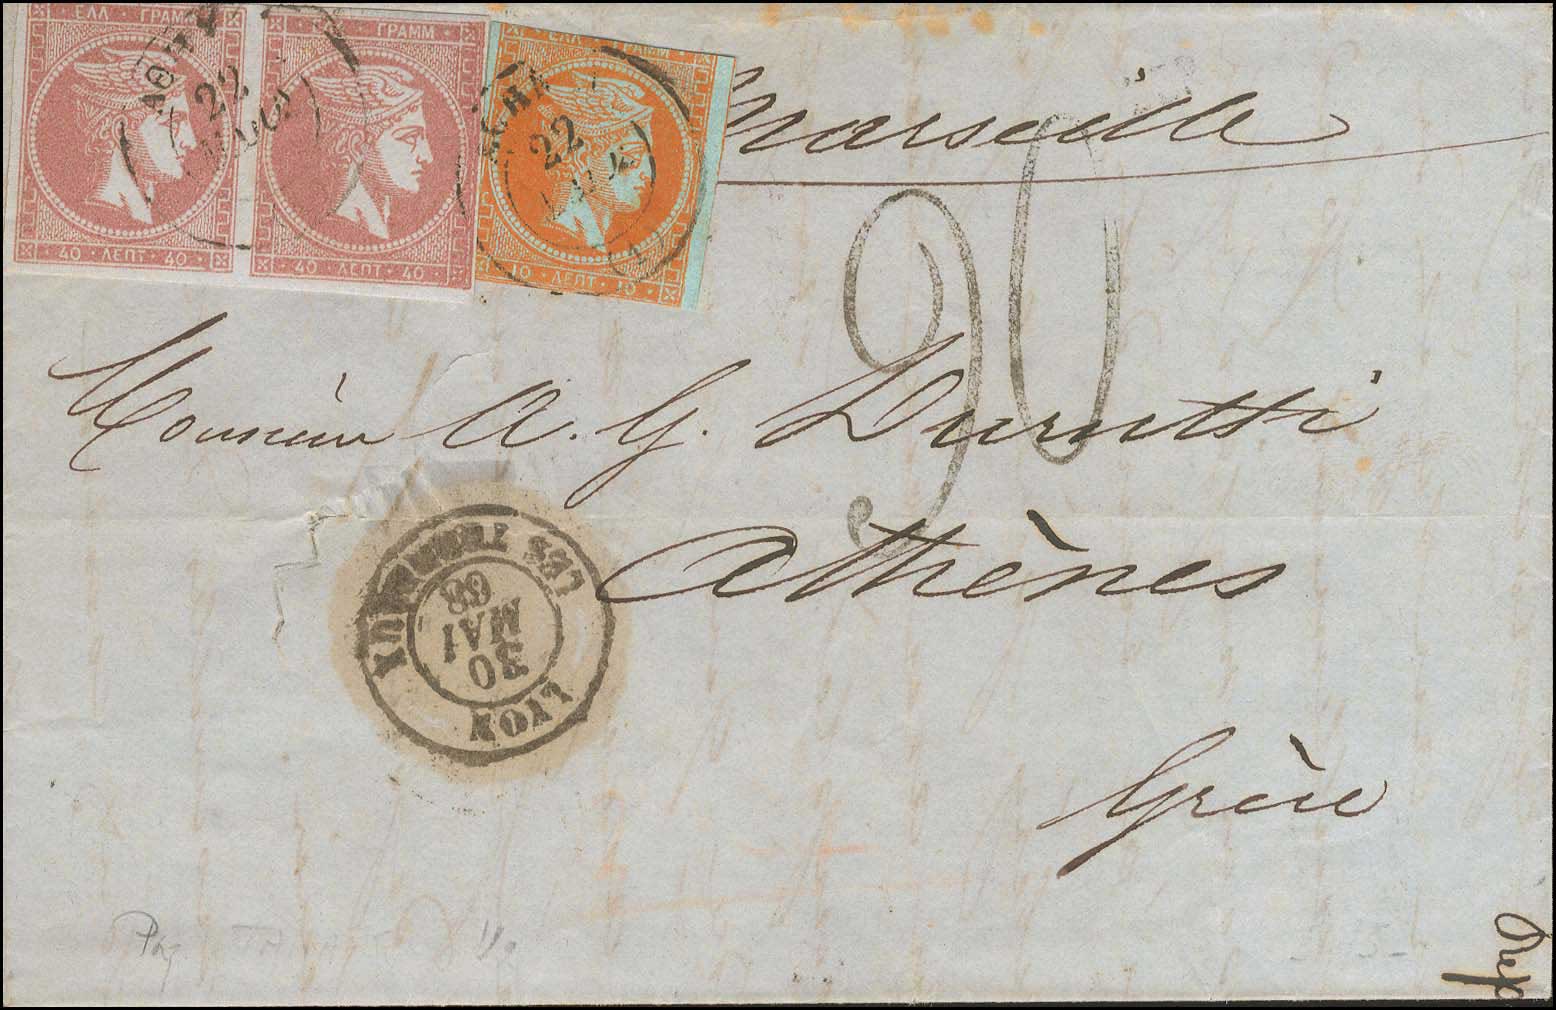 ΕΛΛ ΓΡΑΜΜ
ΓΡΑΜΜ
ΕΛΛ ΓΡΑΜΜ
ΑΘΗΝ
22
22
40 ΛΕΠΤ 40
40 ΛΕΠΤ 40
10 ΛΕΠΤ 10
Marseille
90
Monsieur A. G. Durutti
Athènes
Grèce
LYON
30
MAI
68
LES TERREAUX